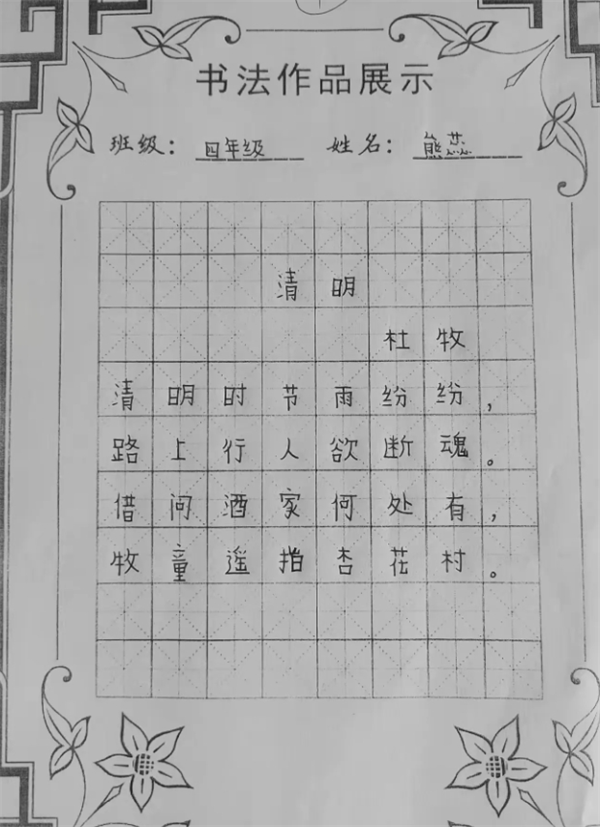 书法作品展示
班级：四年级 姓名：熊蕊
清明
杜牧
清明时节雨纷纷，
路上行人欲断魂。
借问酒家何处有，
牧童遥指杏花村。